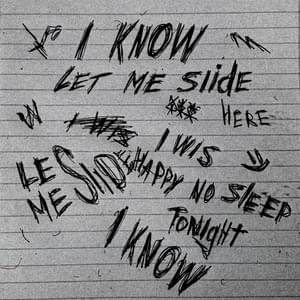 I KNOW
LET ME Sliide
HERE
I WIS
I WIS
LE SliD
ME
HAPPY NO SLEEP
TONIgHT
I KNOW